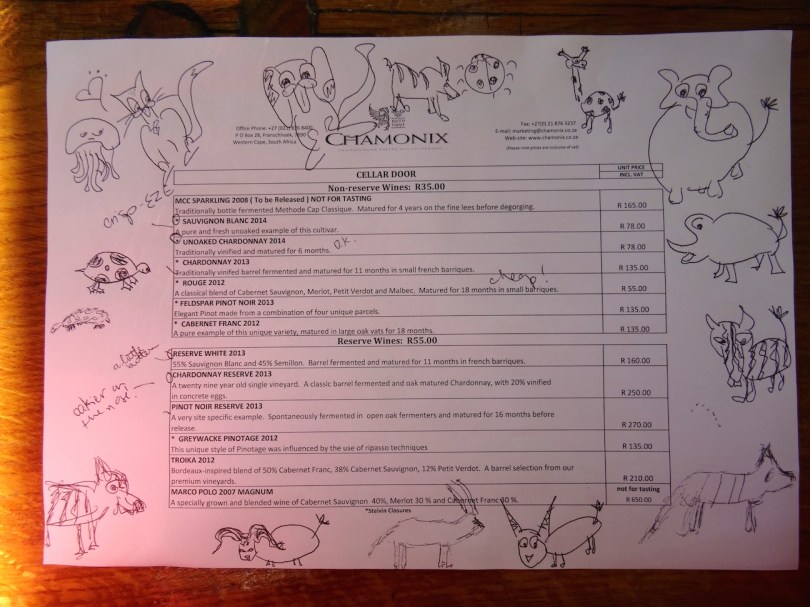 Office Phone: +27 (021) 876 8400
P O Box 28, Franschhoek, 7690
Western Cape, South Africa
CHAMONIX
Fax: +27(0) 21 876 3237
E-mail: marketing@chamonix.co.za
Web-site: www.chamonix.co.za
(Please note prices are inclusive of vat)
CELLAR DOOR
UNIT PRICE
INCL. VAT
Non-reserve Wines: R35.00
MCC SPARKLING 2008 ( To be Released ) NOT FOR TASTING
Traditionally bottle fermented Methode Cap Classique. Matured for 4 years on the fine lees before degorging.
R 165.00
* SAUVIGNON BLANC 2014
A pure and fresh unoaked example of this cultivar.
R 78.00
crisp-EZE
* UNOAKED CHARDONNAY 2014
Traditionally vinified and matured for 6 months.
O.K.
R 78.00
* CHARDONNAY 2013
Traditionally vinifed barrel fermented and matured for 11 months in small french barriques.
R 135.00
* ROUGE 2012
cheap!
A classical blend of Cabernet Sauvignon, Merlot, Petit Verdot and Malbec. Matured for 18 months in small barriques.
R 55.00
* FELDSPAR PINOT NOIR 2013
Elegant Pinot made from a combination of four unique parcels.
R 135.00
* CABERNET FRANC 2012
A pure example of this unique variety, matured in large oak vats for 18 months.
R 135.00
Reserve Wines: R55.00
RESERVE WHITE 2013
55% Sauvignon Blanc and 45% Semillon. Barrel fermented and matured for 11 months in french barriques.
R 160.00
a little
CHARDONNAY RESERVE 2013
A twenty nine year old single vineyard. A classic barrel fermented and oak matured Chardonnay, with 20% vinified
in concrete eggs.
R 250.00
oakier in
the nose!
PINOT NOIR RESERVE 2013
A very site specific example. Spontaneously fermented in open oak fermenters and matured for 16 months before
release.
R 270.00
* GREYWACKE PINOTAGE 2012
This unique style of Pinotage was influenced by the use of ripasso techniques
R 135.00
TROIKA 2012
Bordeaux-inspired blend of 50% Cabernet Franc, 38% Cabernet Sauvignon, 12% Petit Verdot. A barrel selection from our
premium vineyards.
R 210.00
MARCO POLO 2007 MAGNUM
not for tasting
A specially grown and blended wine of Cabernet Sauvignon 40%, Merlot 30 % and Cabernet Franc 30 %.
R 650.00
*Stelvin Closures